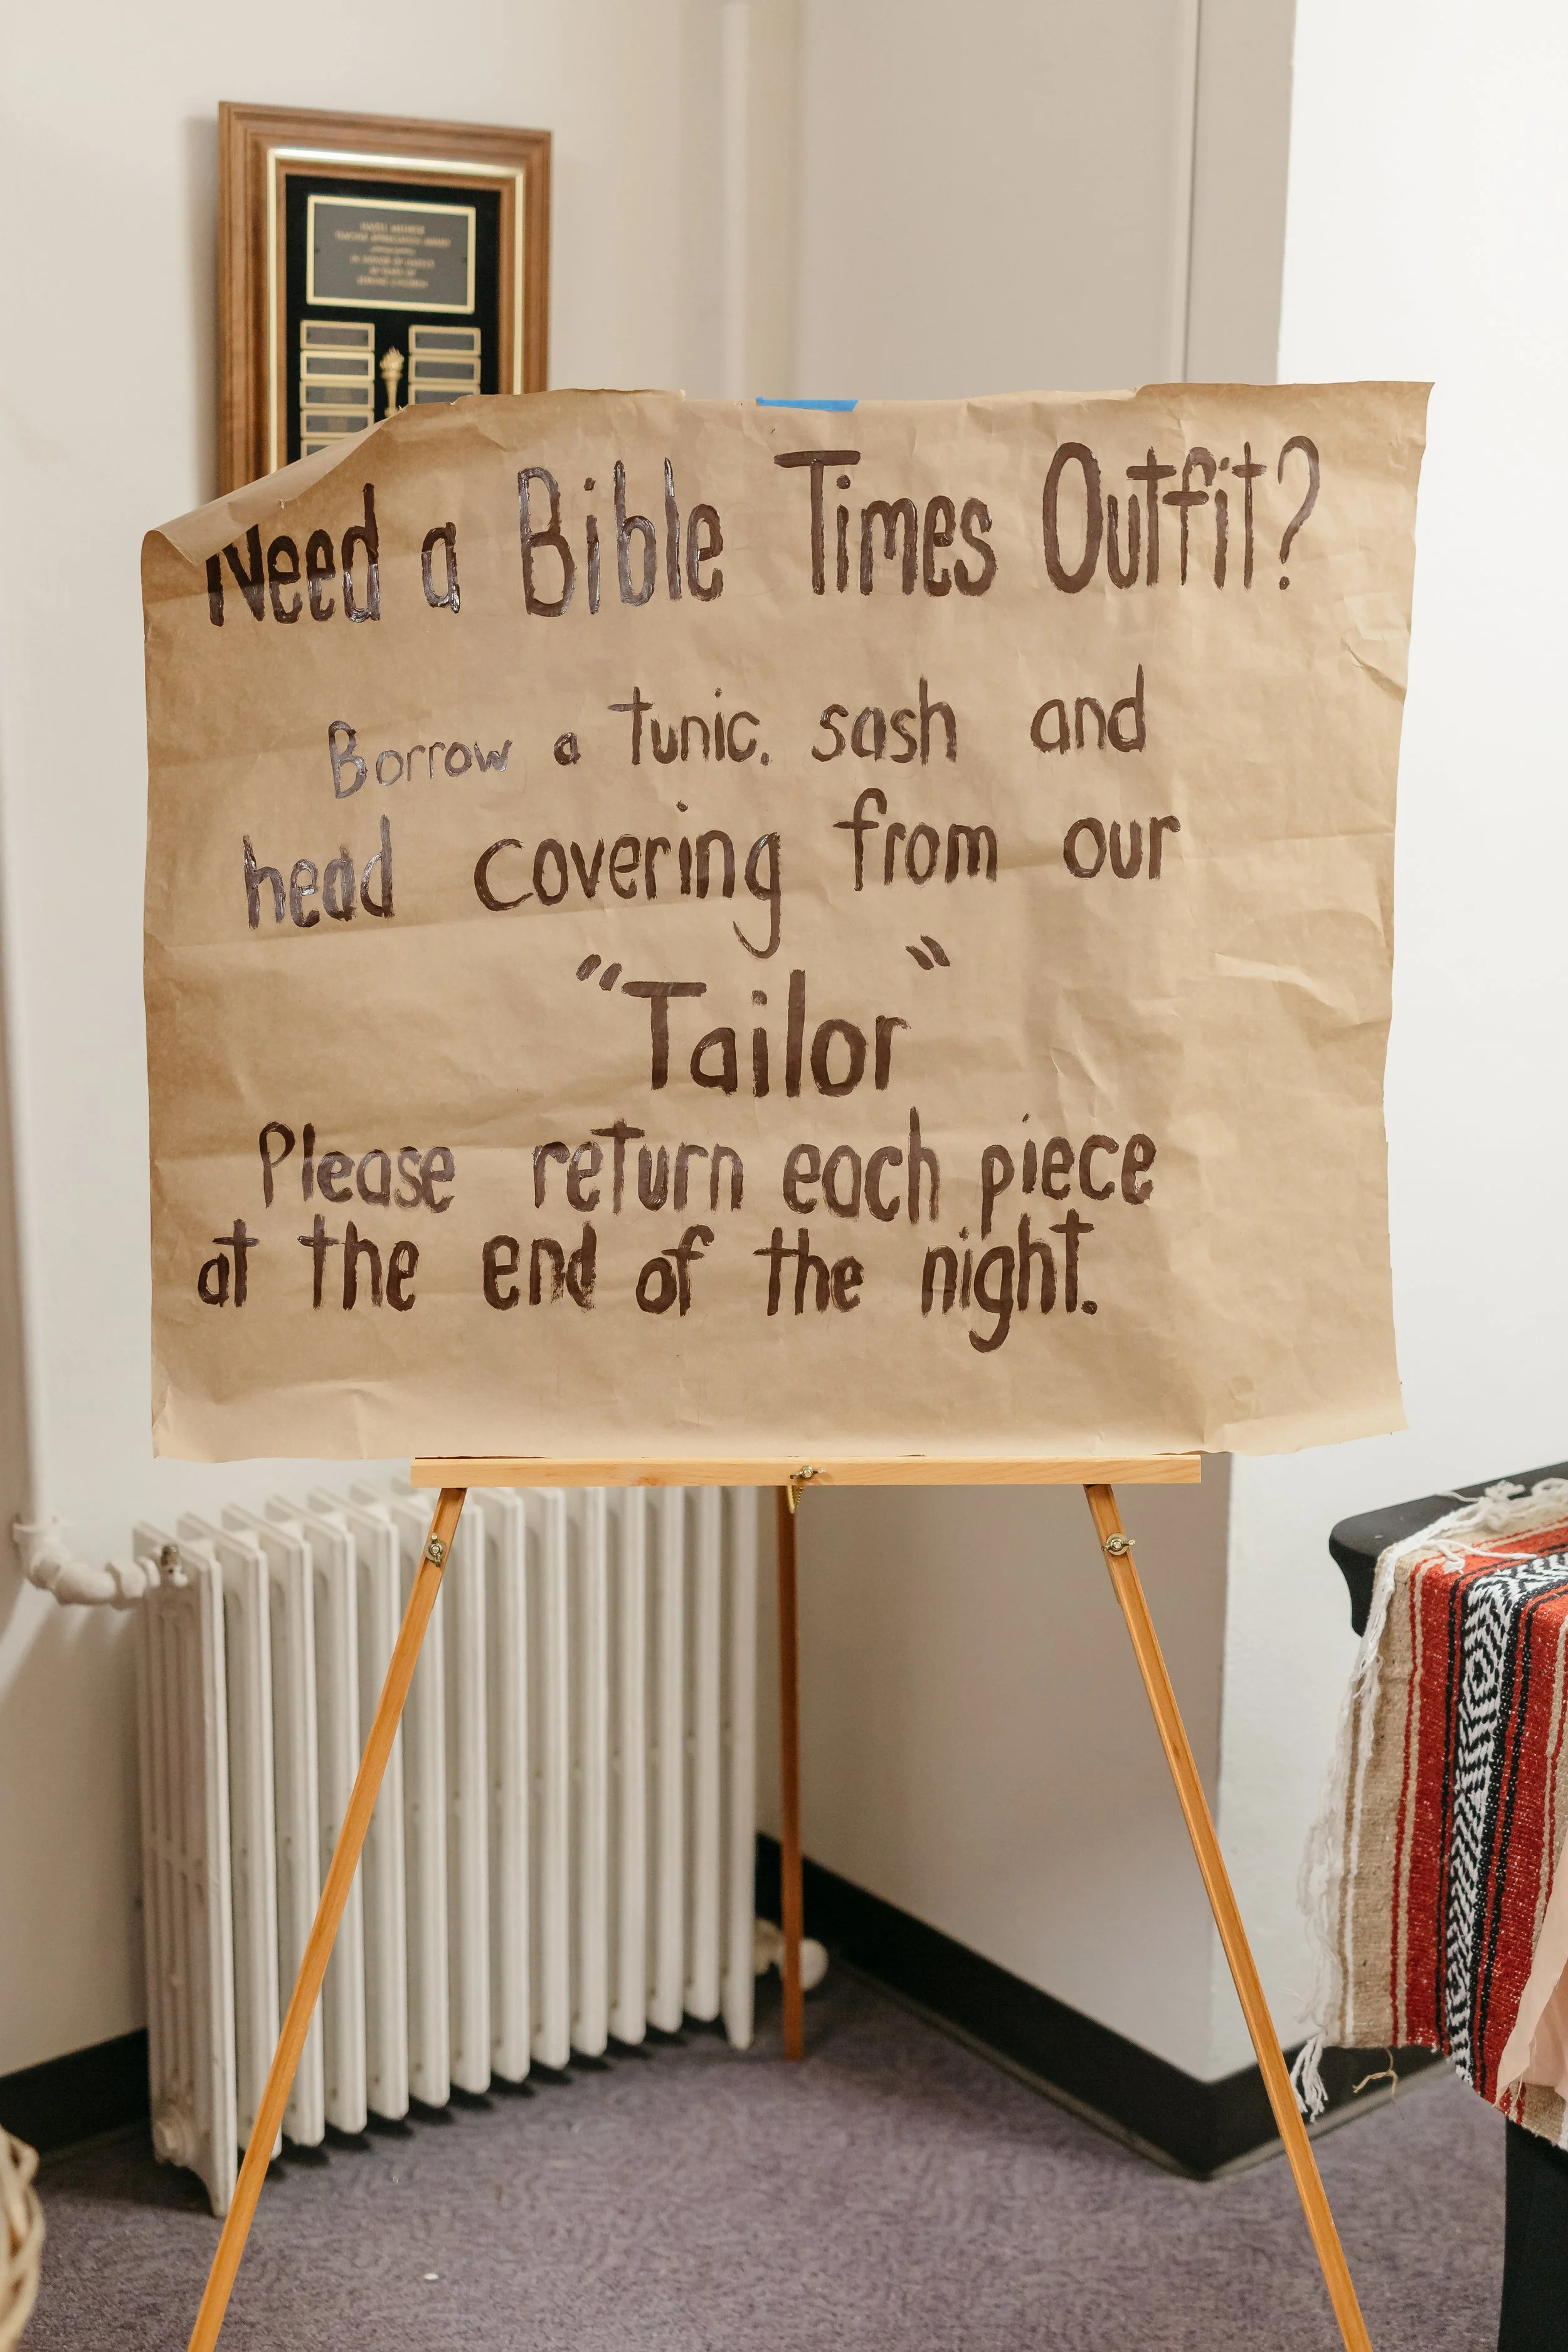 Need a Bible Times Outfit?
Borrow a tunic, sash and
head covering from our
"Tailor"
Please return each piece
at the end of the night.